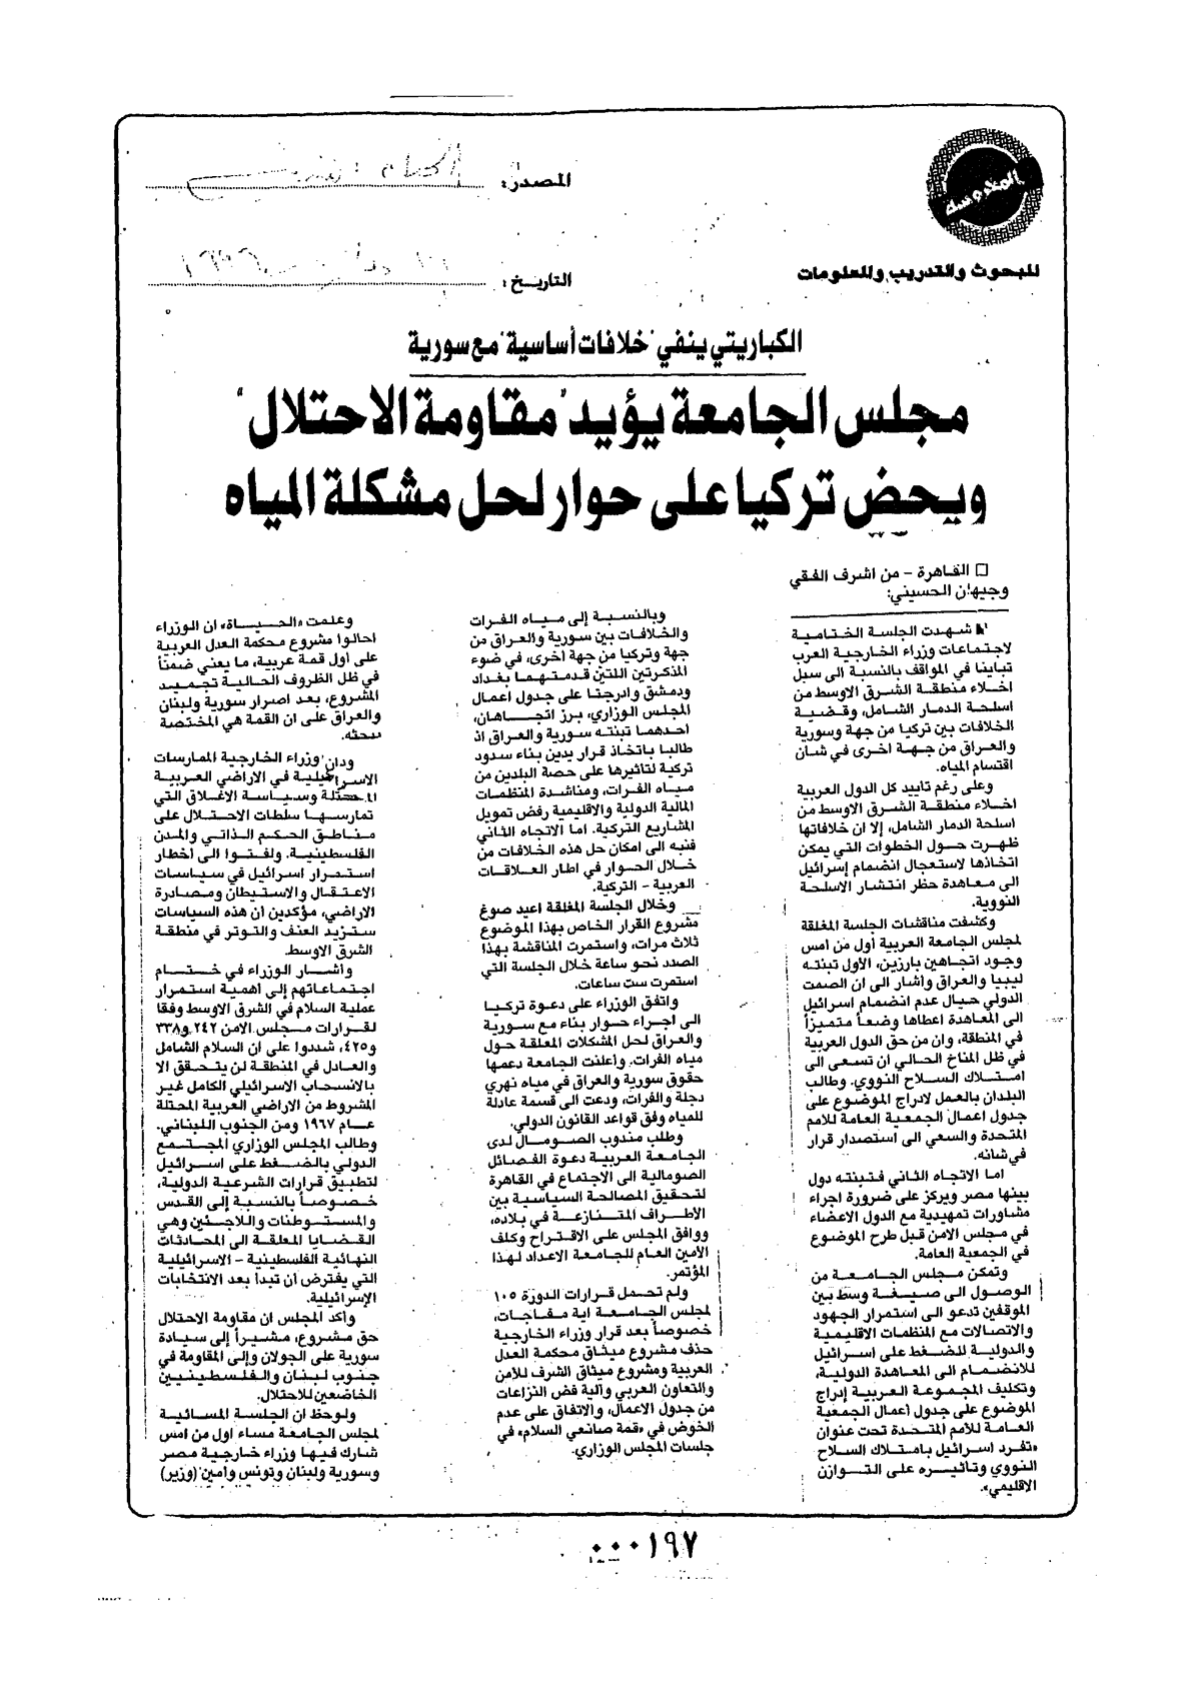 المصدر: الحياة
للبحوث والتدريب والمعلومات
التاريخ:
الكباريتي ينفي "خلافات أساسية" مع سورية
مجلس الجامعة يؤيد "مقاومة الاحتلال"
ويحض تركيا على حوار لحل مشكلة المياه
□ القاهرة - من اشرف الفقي
وجيهان الحسيني:
شهدت الجلسة الختامية
لاجتماعات وزراء الخارجية العرب
تبايناً في المواقف بالنسبة الى سبل
اخلاء منطقة الشرق الاوسط من
اسلحة الدمار الشامل، وقضية
الخلافات بين تركيا من جهة وسورية
والعراق من جهة اخرى في شان
اقتسام المياه.
وعلى رغم تأييد كل الدول العربية
اخلاء منطقة الشرق الاوسط من
اسلحة الدمار الشامل، إلا ان خلافاتها
ظهرت حول الخطوات التي يمكن
اتخاذها لاستعجال انضمام إسرائيل
الى معاهدة حظر انتشار الاسلحة
النووية.
وكشفت مناقشات الجلسة المغلقة
لمجلس الجامعة العربية أول من امس
وجود اتجاهين بارزين، الأول تبنته
ليبيا والعراق وأشار الى ان الصمت
الدولي حيال عدم انضمام اسرائيل
الى المعاهدة اعطاها وضعاً متميزاً
في المنطقة، وان من حق الدول العربية
في ظل المناخ الحالي ان تسعى الى
امتلاك السلاح النووي. وطالب
البلدان بالعمل لادراج الموضوع على
جدول اعمال الجمعية العامة للأمم
المتحدة والسعي الى استصدار قرار
في شانه.
اما الاتجاه الثاني فتبنته دول
بينها مصر ويركز على ضرورة اجراء
مشاورات تمهيدية مع الدول الاعضاء
في مجلس الامن قبل طرح الموضوع
في الجمعية العامة.
وتمكن مجلس الجامعة من
الوصول الى صيغة وسط بين
الموقفين تدعو الى استمرار الجهود
والاتصالات مع المنظمات الاقليمية
والدولية للضغط على اسرائيل
للانضمام الى المعاهدة الدولية،
وتكليف المجموعة العربية إدراج
الموضوع على جدول أعمال الجمعية
العامة للأمم المتحدة تحت عنوان
«تفرد اسرائيل بامتلاك السلاح
النووي وتأثيره على التوازن
الاقليمي».
وبالنسبة إلى مياه الفرات
والخلافات بين سورية والعراق من
جهة وتركيا من جهة أخرى، في ضوء
المذكرتين اللتين قدمتهما بغداد
ودمشق وادرجتا على جدول اعمال
المجلس الوزاري، برز اتجاهان،
احدهما تبنته سورية والعراق اذ
طالبا باتخاذ قرار يدين بناء سدود
تركية لتأثيرها على حصة البلدين من
مياه الفرات، ومناشدة المنظمات
المالية الدولية والاقليمية رفض تمويل
المشاريع التركية. اما الاتجاه الثاني
فنبه الى امكان حل هذه الخلافات من
خلال الحوار في اطار العلاقات
العربية - التركية.
وخلال الجلسة المغلقة اعيد صوغ
مشروع القرار الخاص بهذا الموضوع
ثلاث مرات، واستمرت المناقشة بهذا
الصدد نحو ساعة خلال الجلسة التي
استمرت ست ساعات.
واتفق الوزراء على دعوة تركيا
الى اجراء حوار بناء مع سورية
والعراق لحل المشكلات المعلقة حول
مياه الفرات. وأعلنت الجامعة دعمها
حقوق سورية والعراق في مياه نهري
دجلة والفرات، ودعت الى قسمة عادلة
للمياه وفق قواعد القانون الدولي.
وطلب مندوب الصومال لدى
الجامعة العربية دعوة الفصائل
الصومالية الى الاجتماع في القاهرة
لتحقيق المصالحة السياسية بين
الاطراف المتنازعة في بلاده،
ووافق المجلس على الاقتراح وكلف
الأمين العام للجامعة الاعداد لهذا
المؤتمر.
ولم تحمل قرارات الدورة ١٠٥
لمجلس الجامعة اية مفاجات،
خصوصاً بعد قرار وزراء الخارجية
حذف مشروع ميثاق محكمة العدل
العربية ومشروع ميثاق الشرف للأمن
والتعاون العربي وآلية فض النزاعات
من جدول الاعمال، والاتفاق على عدم
الخوض في «قمة صانعي السلام» في
جلسات المجلس الوزاري.
وعلمت «الحياة» ان الوزراء
احالوا مشروع محكمة العدل العربية
على أول قمة عربية، ما يعني ضمناً
في ظل الظروف الحالية تجميد
المشروع، بعد اصرار سورية ولبنان
والعراق على ان القمة هي المختصة
ببحثه.
ودان وزراء الخارجية الممارسات
الاسرائيلية في الاراضي العربية
المحتلة وسياسة الاغلاق التي
تمارسها سلطات الاحتلال على
مناطق الحكم الذاتي والمدن
الفلسطينية. ولفتوا الى أخطار
استمرار اسرائيل في سياسات
الاعتقال والاستيطان ومصادرة
الاراضي، مؤكدين ان هذه السياسات
ستزيد العنف والتوتر في منطقة
الشرق الاوسط.
واشار الوزراء في ختام
اجتماعاتهم إلى اهمية استمرار
عملية السلام في الشرق الأوسط وفقا
لقرارات مجلس الامن ٢٤٢ و٣٣٨
و٤٢٥، شددوا على ان السلام الشامل
والعادل في المنطقة لن يتحقق الا
بالانسحاب الاسرائيلي الكامل غير
المشروط من الاراضي العربية المحتلة
عام ١٩٦٧ ومن الجنوب اللبناني.
وطالب المجلس الوزاري المجتمع
الدولي بالضغط على اسرائيل
لتطبيق قرارات الشرعية الدولية،
خصوصاً بالنسبة إلى القدس
والمستوطنات واللاجئين وهي
القضايا المعلقة الى المحادثات
النهائية الفلسطينية - الاسرائيلية
التي يفترض ان تبدأ بعد الانتخابات
الإسرائيلية.
وأكد المجلس ان مقاومة الاحتلال
حق مشروع، مشيراً إلى سيادة
سورية على الجولان وإلى المقاومة في
جنوب لبنان والفلسطينيين
الخاضعين للاحتلال.
ولوحظ ان الجلسة المسائية
لمجلس الجامعة مساء اول من امس
شارك فيها وزراء خارجية مصر
وسورية ولبنان وتونس وأمين (وزير)
٠٠٠١٩٧